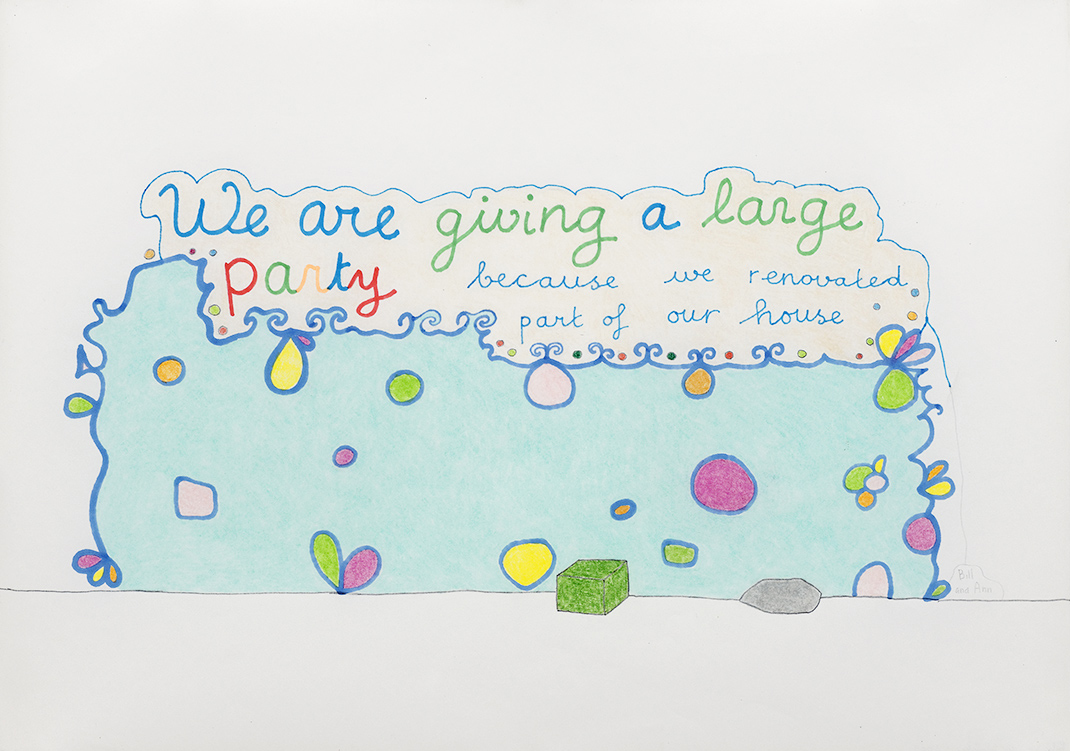 We are giving a large
party because we renovated
part of our house
Bill
and Ann